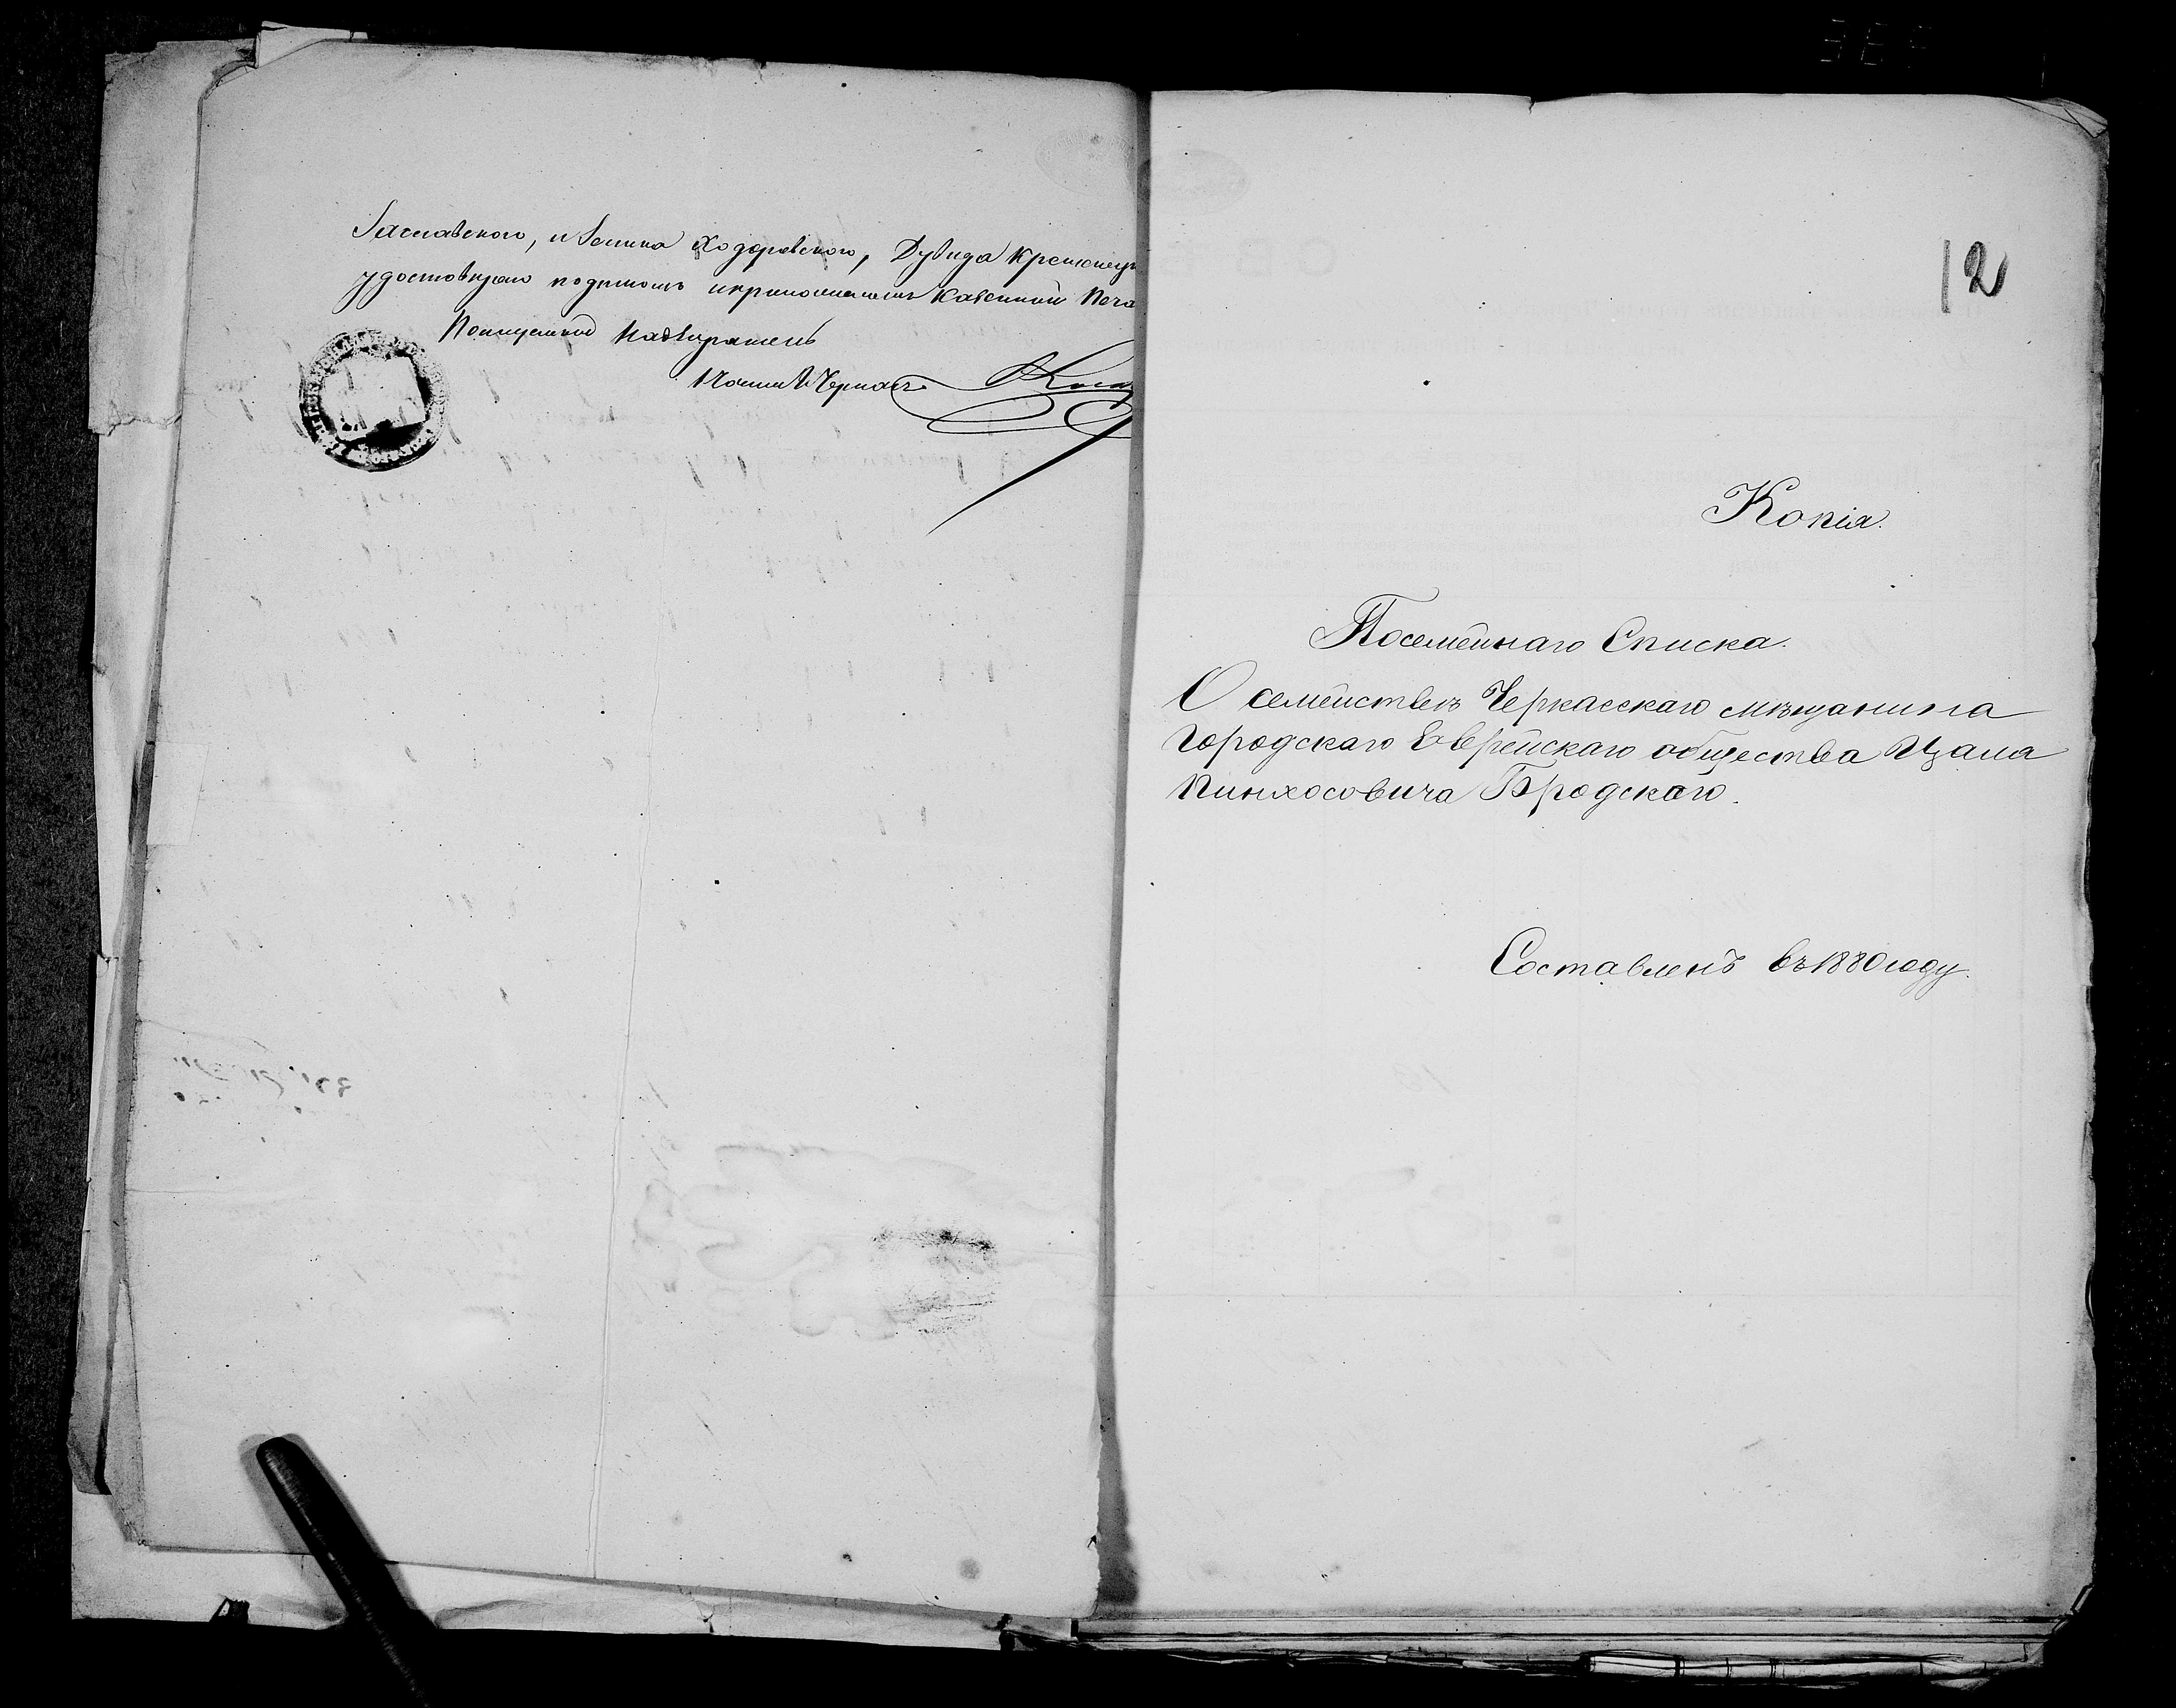 Заславского, и Зелика Ходоровского, Дувида Кременчу
удостовѣряю подписомъ и приложеніемъ Казенной Печа
Полицейской Надзиратель
12
Копія.
Посемейнаго Списка.
О семействѣ Черкасскаго мѣщанина
Городскаго Еврейскаго общества Цаля
Пинхосовича Бродскаго.
Составленъ въ 1880 году.